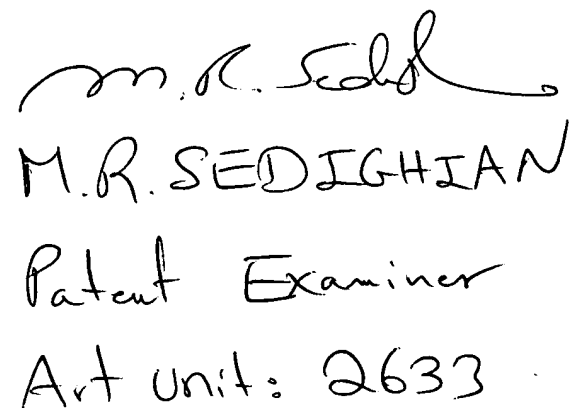 M. R. Sedigh
M.R. SEDIGHIAN
Patent Examiner
Art unit: 2633